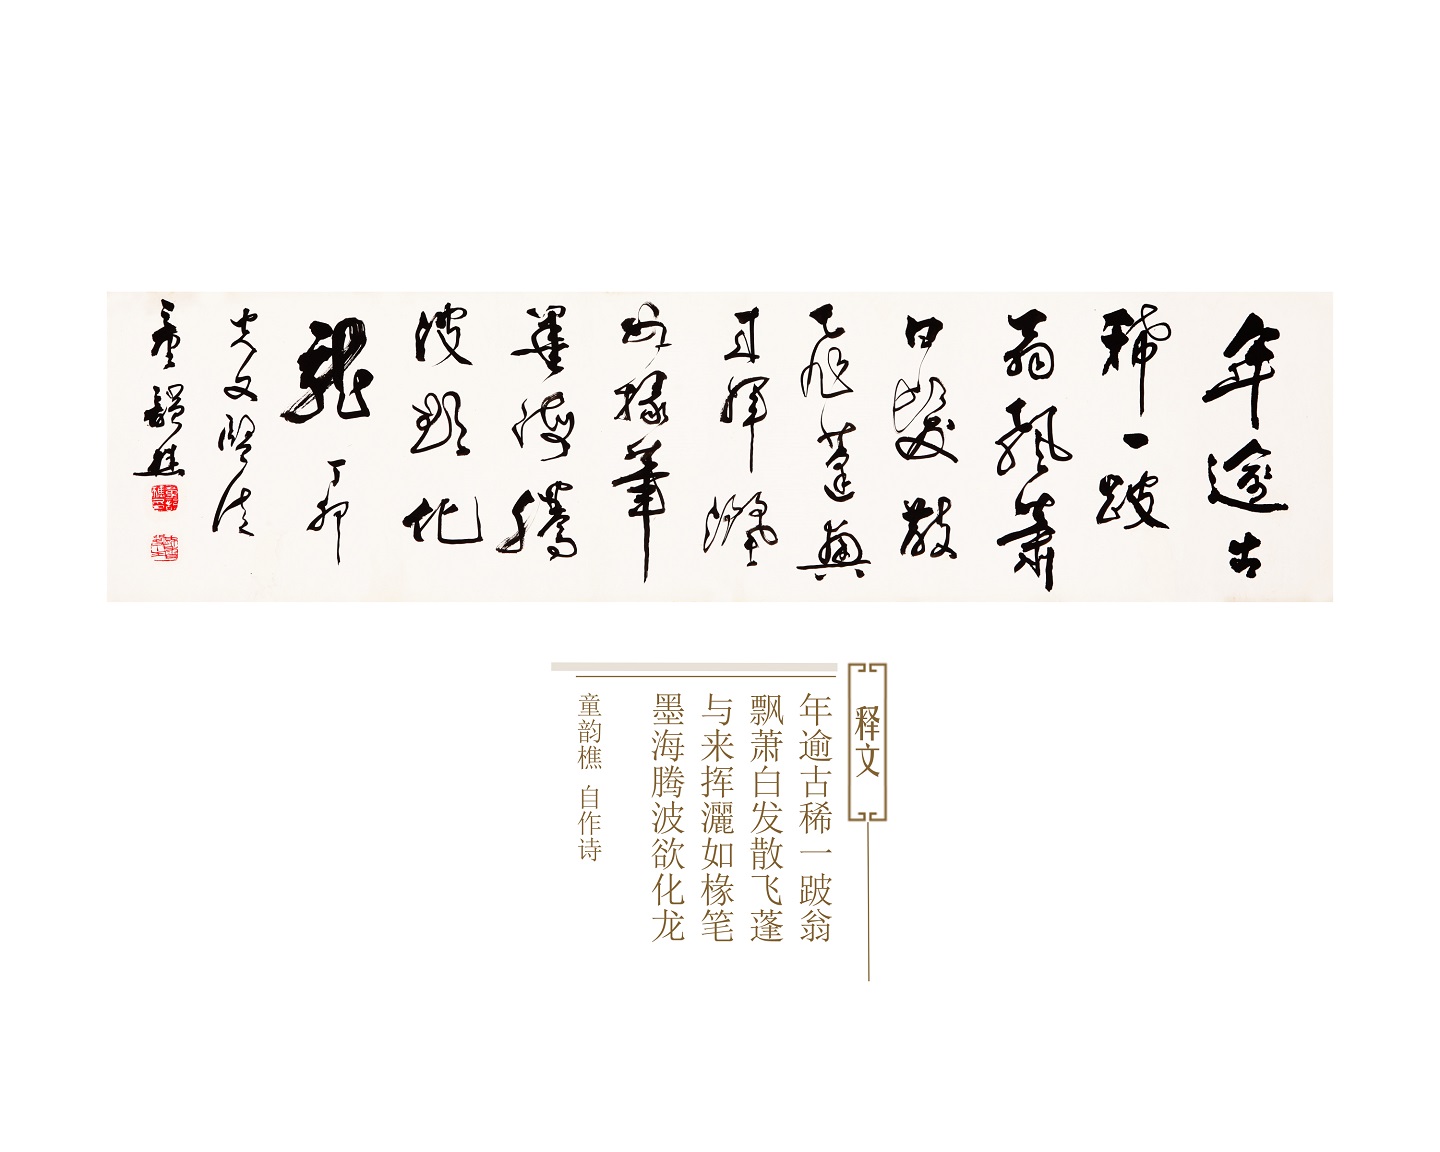 年逾古
稀一跛
翁飘萧
白发散
飞蓬兴
来挥洒
如椽笔
墨海腾
波欲化
龙 丁卯
童韵樵
释文
年逾古稀一跛翁
飘萧白发散飞蓬
与来挥灑如椽笔
墨海腾波欲化龙
童韵樵 自作诗